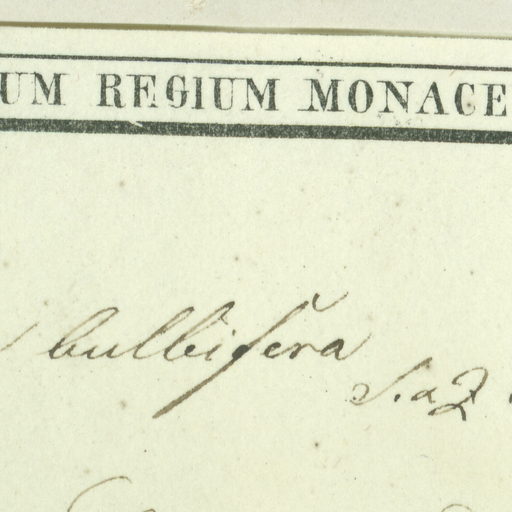 UM REGIUM MONACE
bulbifera